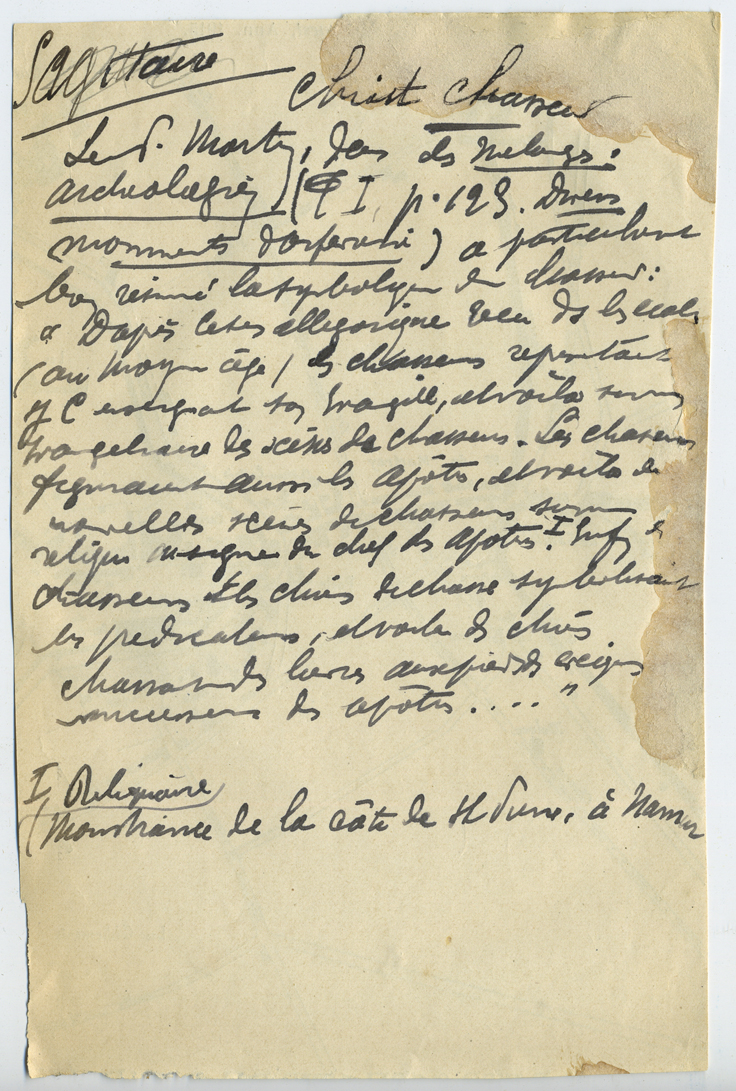 Sagittaire
Christ Chasseur
Le P. Martin, dans des Mélanges
archéologies (T I, p. 123. Divers
monuments d'orfèvrerie) a particulièrement
bien résumé la symbolique du chasseur :
« D'après le sens allégorique reçu dans les écoles
(au moyen âge) les chasseurs représentaient
J C enseignant son Evangile, et voilà sur un
évangéliaire des scènes de chasseurs. Les chasseurs
figuraient aussi les apôtres, et voilà de
nouvelles scènes de chasseurs sur une
relique insigne du chef des apôtres. I Enfin les
chasseurs et les chiens de chasse symbolisaient
les prédicateurs, et voilà des chiens
chassant des lièvres aux pieds des
successeurs des apôtres.... "
I, Reliquaire
(Monstrance de la côte de St Pierre, à Namur